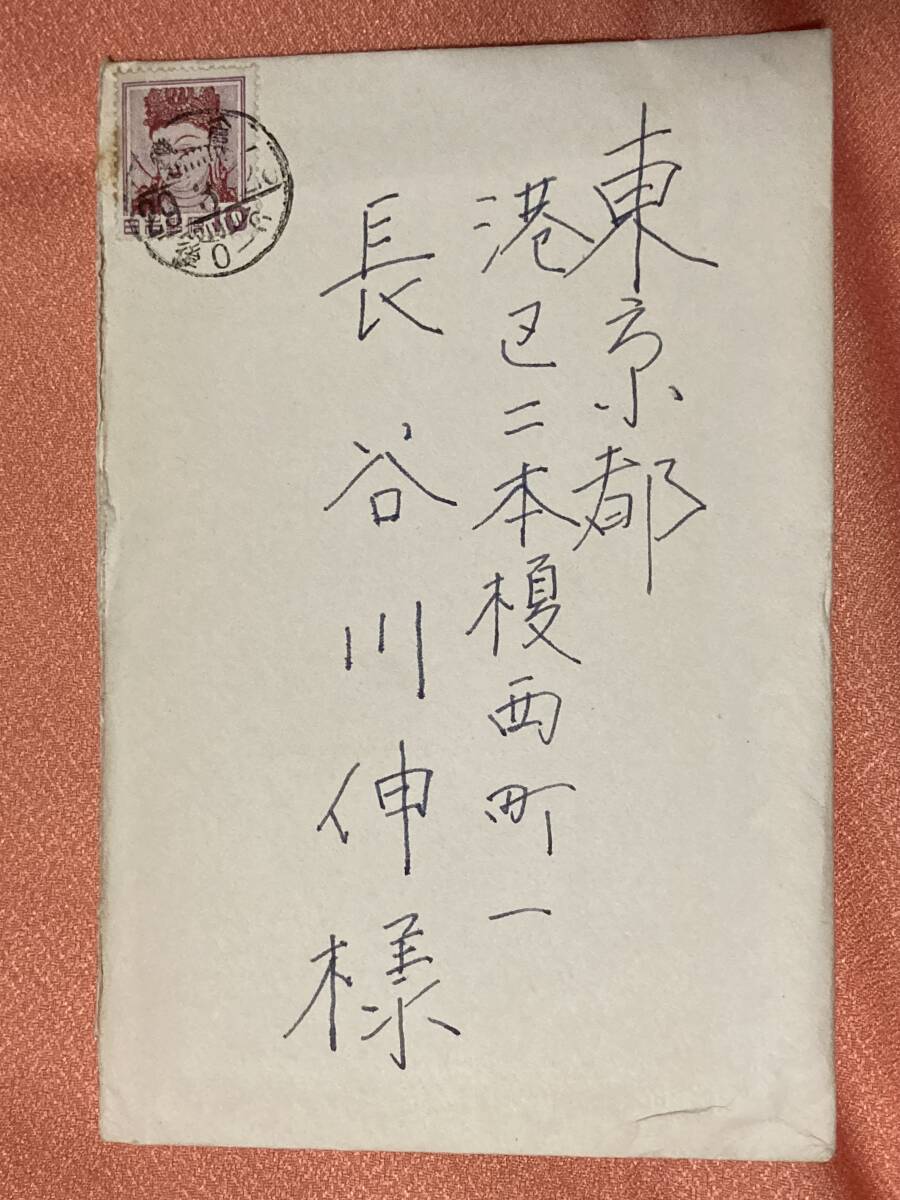 東京都
港区二本榎西町一
長谷川伸様
日本郵便
10